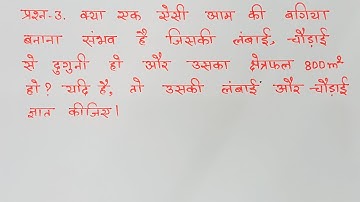 प्रश्न-3. क्या एक ऐसी आम की बगिया
बनाना संभव है जिसकी लंबाई, चौड़ाई
से दुगुनी हो और उसका क्षेत्रफल 800m²
हो? यदि है, तो उसकी लंबाई और चौड़ाई
ज्ञात कीजिए।